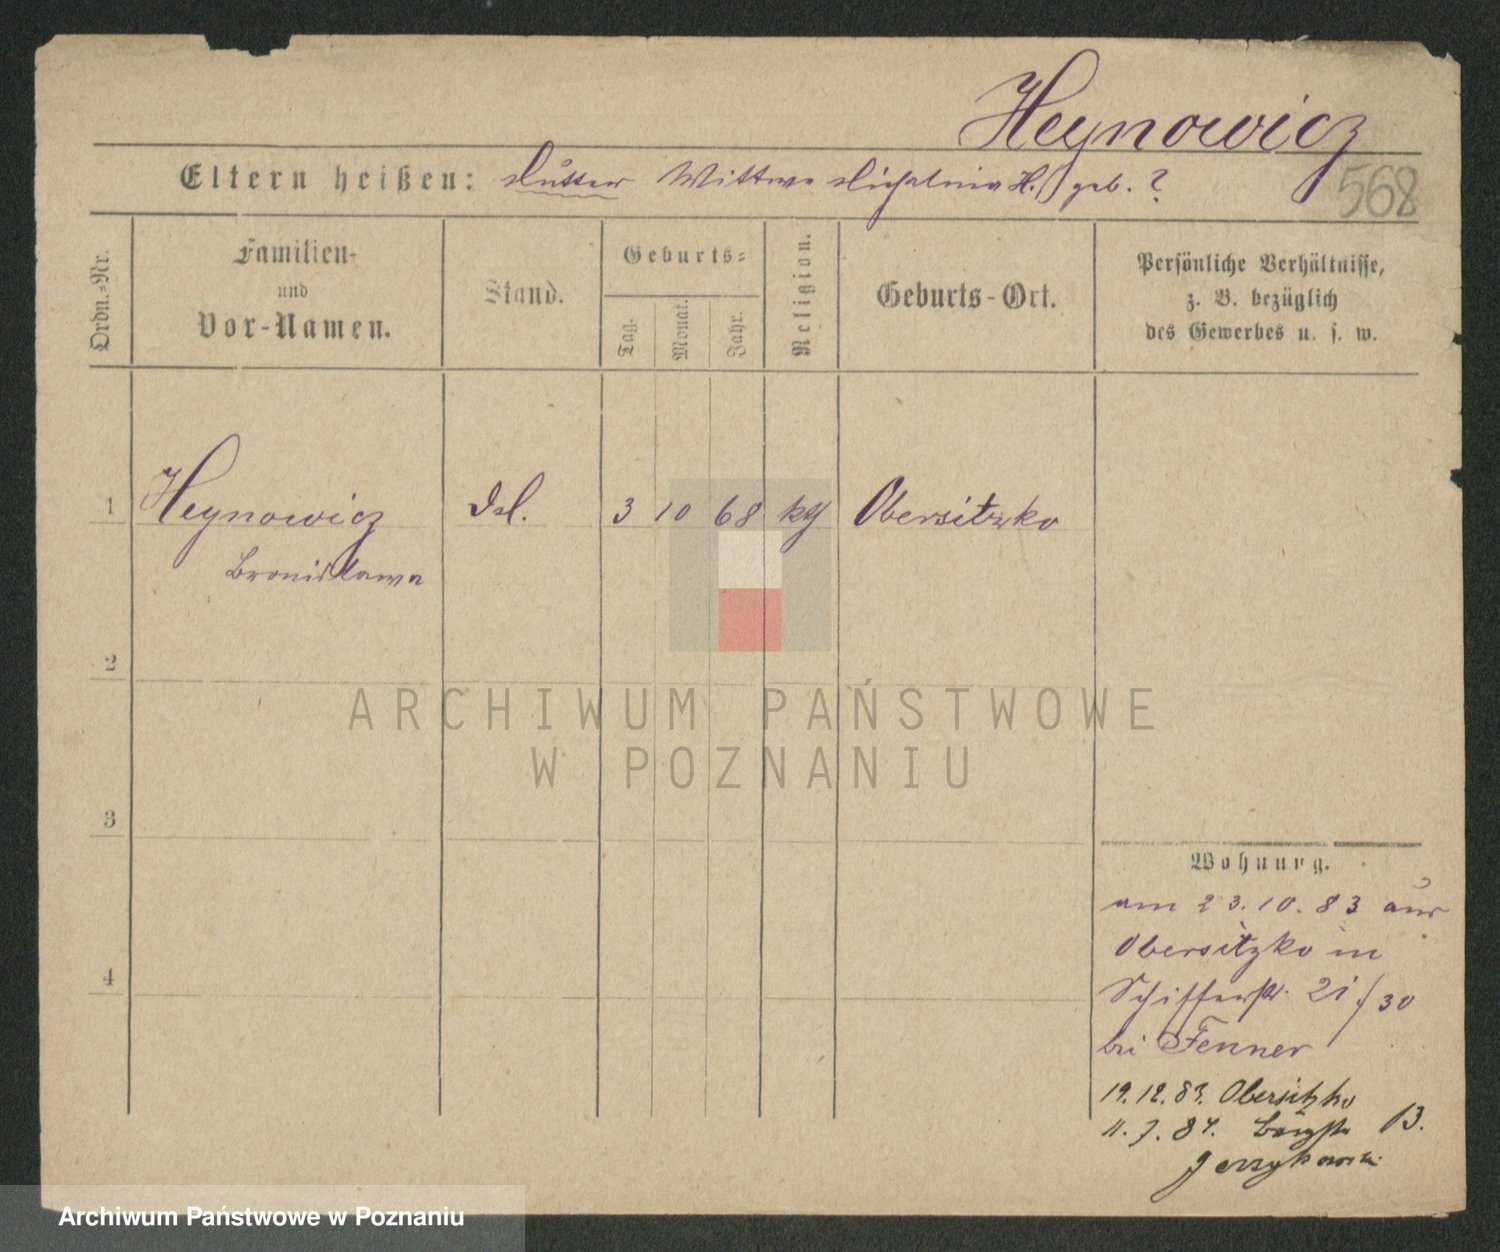 Heynowicz
Eltern heißen: Mutter Wittwe Michalina H. geb. ?
568
Ordn.-Nr.
Familien-
und
Vor-Namen.
Stand.
Geburts-
Tag.
Monat.
Jahr.
Religion.
Geburts-Ort.
Persönliche Verhältnisse,
z. B. bezüglich
des Gewerbes u. s. w.
1 Heynowicz 3 10 68 kth Obersitzko
Bronislawa
2
3
4
Wohnung.
am 23.10.83 aus
Obersitzko in
Schifferstr. 21/30
bei Fenner
19.12.83. Obersitzko
11.7.84. 13.
Jerzykowski
ARCHIWUM PAŃSTWOWE
W POZNANIU
Archiwum Państwowe w Poznaniu